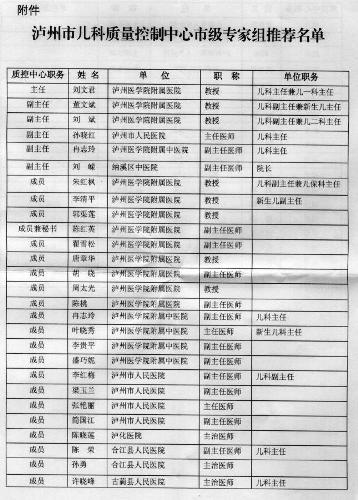 附件
泸州市儿科质量控制中心市级专家组推荐名单
质控中心职务 姓名 单位 职称 单位职务
主任 刘文君 泸州医学院附属医院 教授 儿科主任兼儿一科主任
副主任 董文斌 泸州医学院附属医院 教授 儿科副主任兼新生儿主任
副主任 刘斌 泸州医学院附属医院 教授 儿科副主任兼儿二科主任
副主任 孙晓红 泸州市人民医院 主任医师 儿科主任
副主任 冉志玲 泸州医学院附属中医院 副主任医师 儿科主任
副主任 刘嵘 纳溪区中医院 副主任医师 院长
成员 朱红枫 泸州医学院附属医院 教授 儿科副主任兼儿保科主任
成员 李清平 泸州医学院附属医院 教授 新生儿副主任
成员 郭渠莲 泸州医学院附属医院 教授
成员兼秘书 陈红英 泸州医学院附属医院 副主任医师
成员 翟雪松 泸州医学院附属医院 副主任医师
成员 唐章华 泸州医学院附属医院 教授
成员 胡晓 泸州医学院附属医院 副主任医师
成员 周太光 泸州医学院附属医院 教授
成员 陈桃 泸州医学院附属医院 副主任医师
成员 冉志玲 泸州医学院附属中医院 副主任医师 儿科主任
成员 叶晓秀 泸州医学院附属中医院 主任医师 新生儿科主任
成员 李贵平 泸州医学院附属中医院 副主任医师
成员 潘巧妮 泸州医学院附属中医院 副主任医师
成员 李红梅 泸州市人民医院 副主任医师 儿科副主任
成员 梁玉兰 泸州市人民医院 副主任医师
成员 张艳丽 泸州市人民医院 主任医师
成员 简国江 泸州市人民医院 副主任医师
成员 陈晓莲 泸化医院 主治医师
成员 陈荣 合江县人民医院 副主任医师 儿科主任
成员 孙勇 合江县人民医院 主治医师
成员 许晓峰 古蔺县人民医院 主治医师 儿科主任